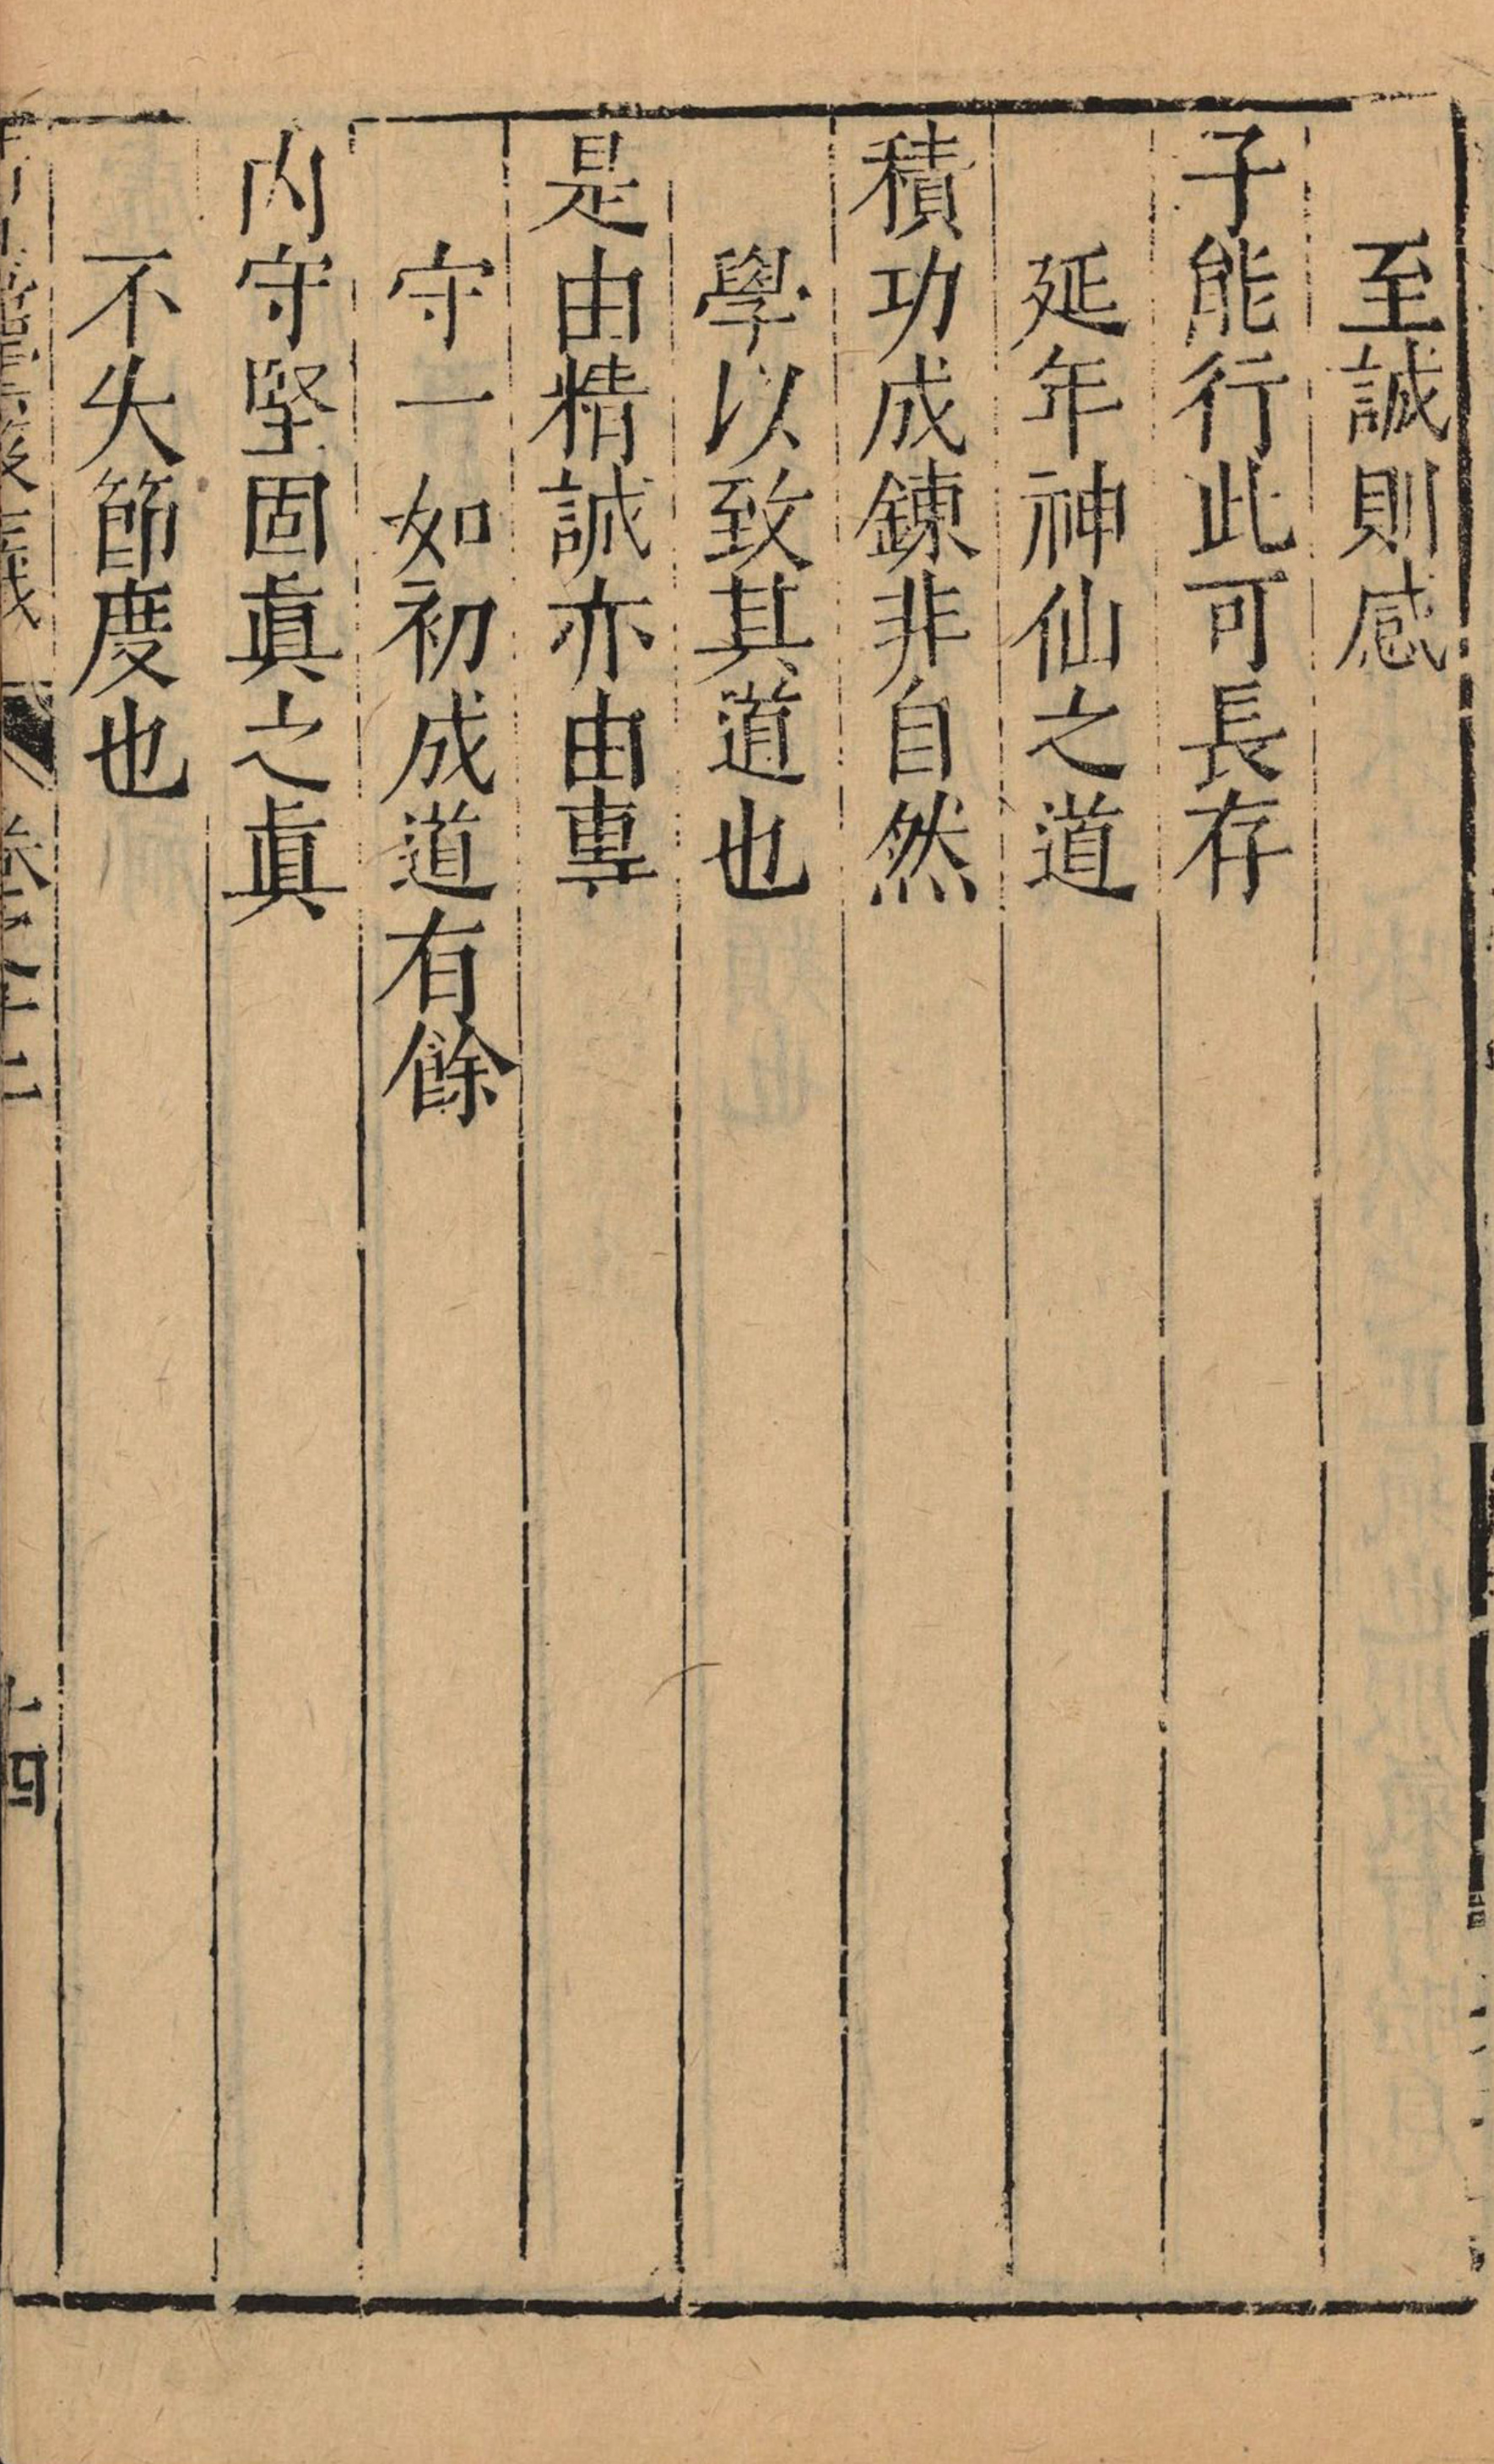 至誠則感
子能行此可長存
延年神仙之道
積功成鍊非自然
學以致其道也
是由精誠亦由專
守一如初成道有餘
內守堅固眞之眞
不失節度也
卷之十二
十四